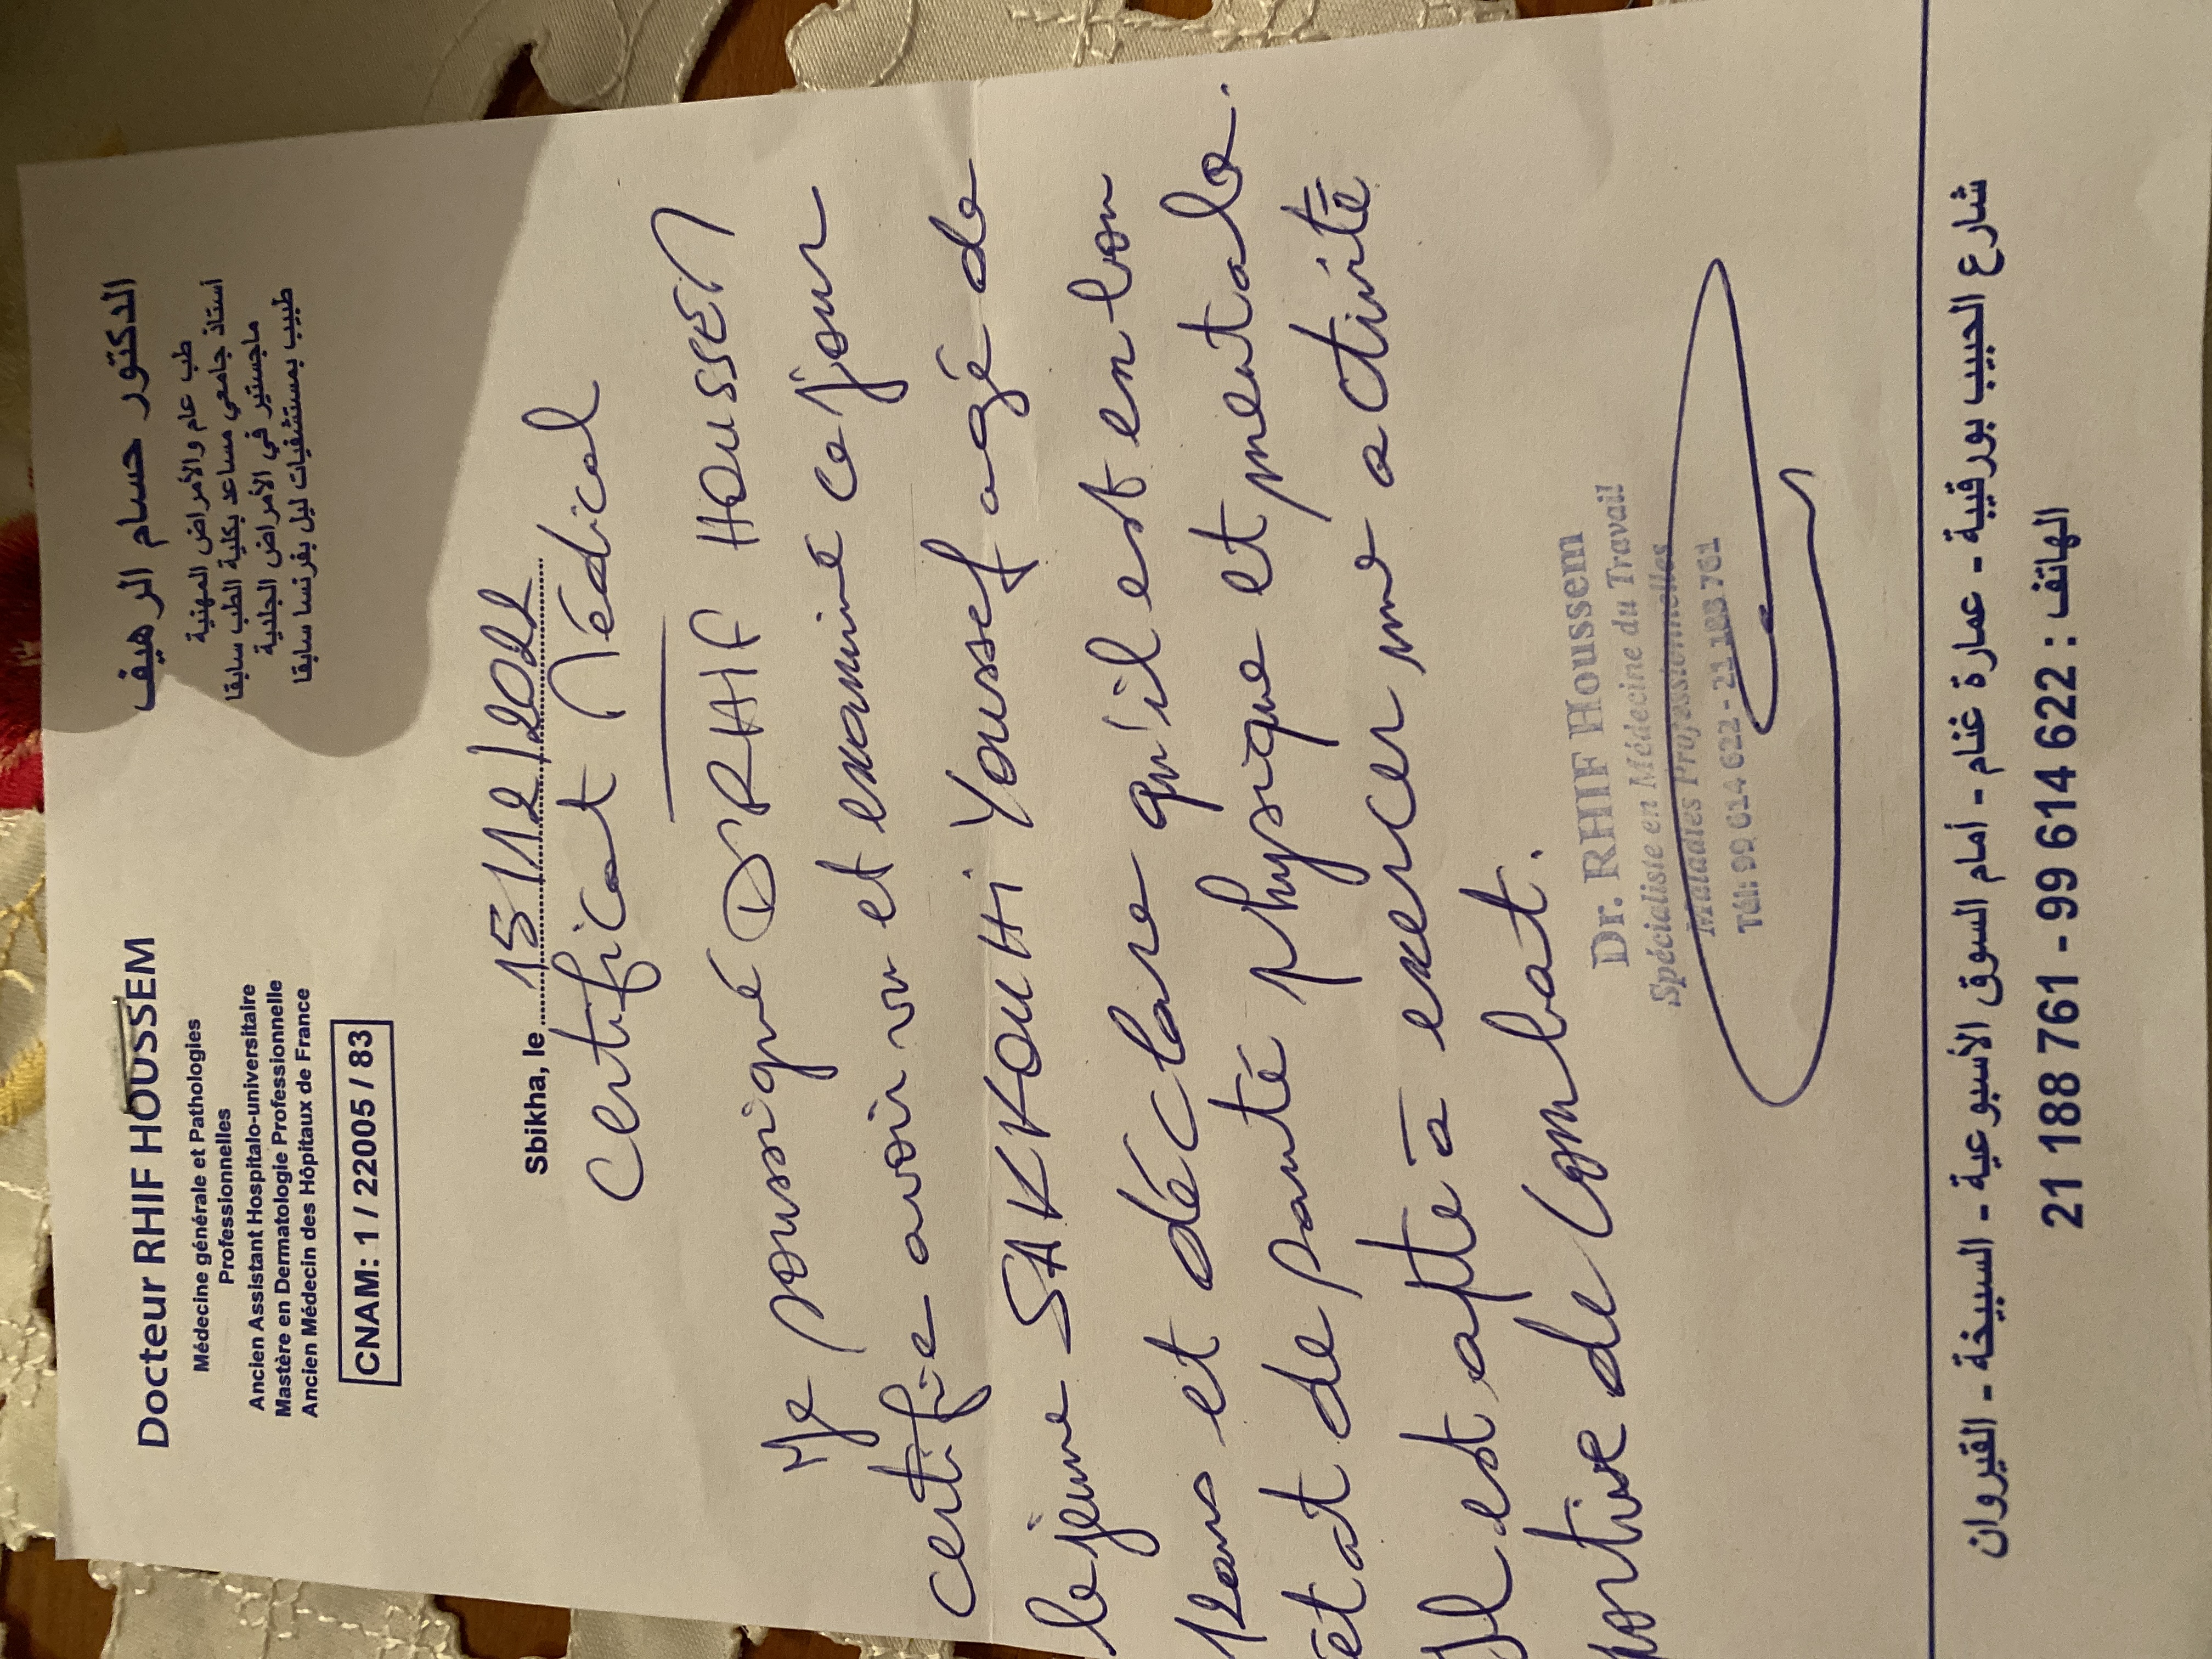 Docteur RHIF HOUSSEM
Médecine générale et Pathologies
Professionnelles
Ancien Assistant Hospitalo-universitaire
Mastère en Dermatologie Professionnelle
Ancien Médecin des Hôpitaux de France
CNAM: 1 / 22005 / 83
الدكتور حسام الرهيف
طب عام والأمراض المهنية
أستاذ جامعي مساعد بكلية الطب سابقا
ماجستير في الأمراض الجلدية
طبيب بمستشفيات ليل بفرنسا سابقا
Sbikha, le 15/12/2022
Certificat Médical
Je soussigné Dr RHIF HOUSSEM
certifie avoir vu et examiné ce jour
le jeune SAKKOUHI Youssef agé de
12ans et déclare qu'il est en bon
état de santé physique et mentale.
Il est apte à exercer une activité
sportive de combat.
Dr. RHIF Houssem
Spécialiste en Médecine du Travail
Maladies Professionnelles
Tél: 99 614 622 - 21 188 761
شارع الحبيب بورقيبة - عمارة غنام - أمام السوق الأسبوعية - السبيخة - القيروان
الهاتف : 622 614 99 - 761 188 21